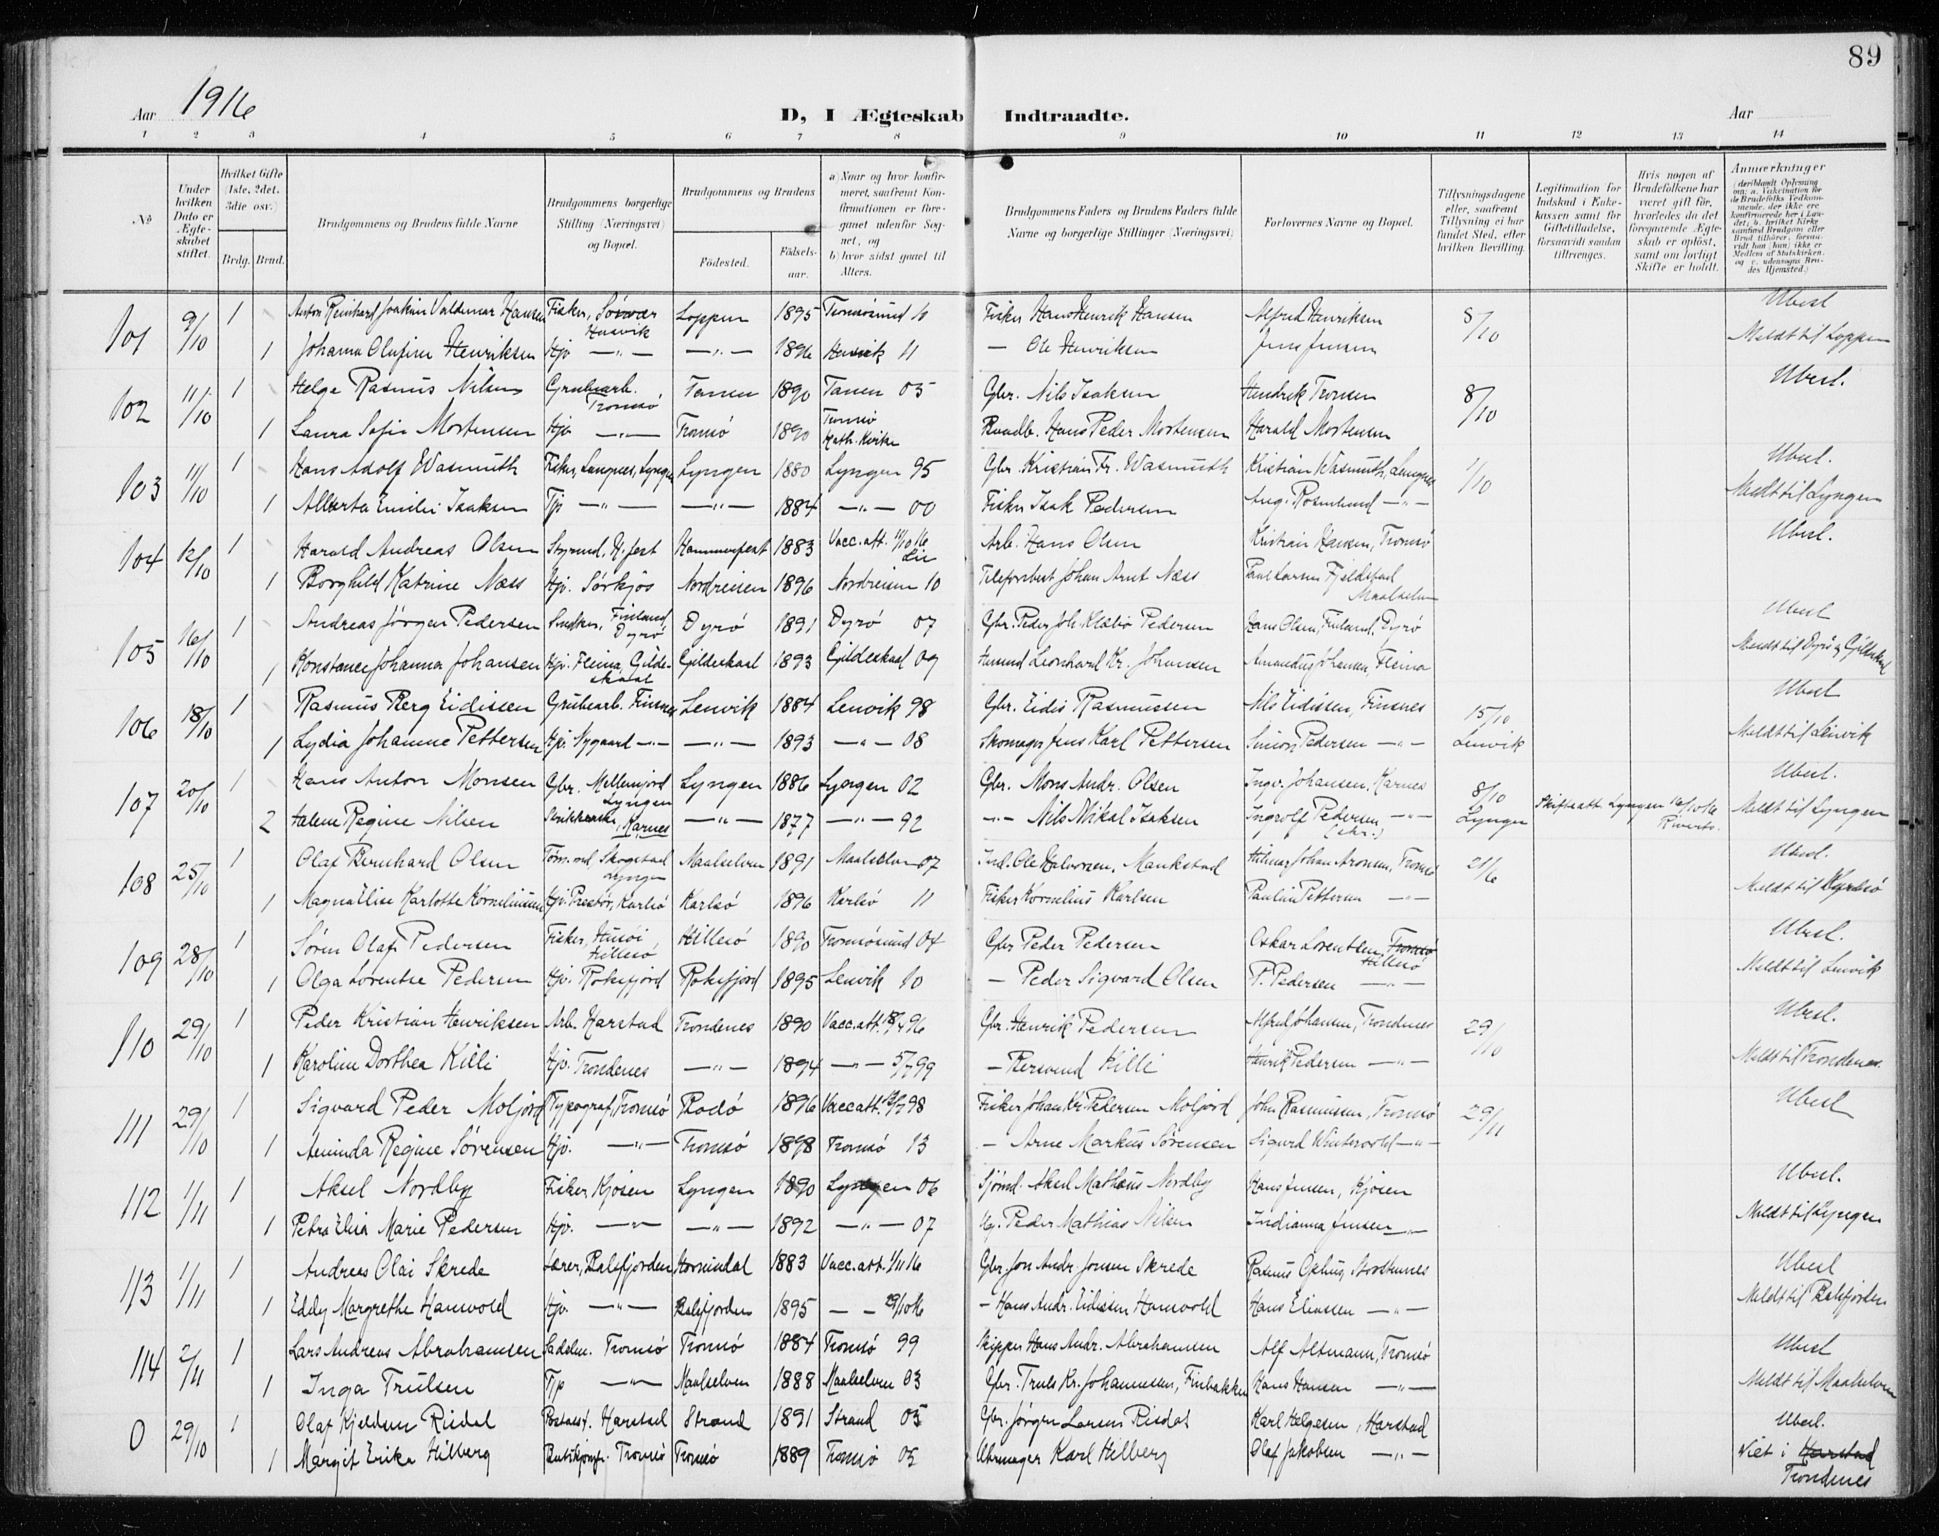 89
Aar 1916
D, I Ægteskab Indtraadte.
Aar
1 2 3 4 5 6 7 8 9 10 11 12 13 14
No
Under hvilken Dato er Ægteskabet stiftet.
Hvilket Gifte (1ste, 2det, 3die osv.)
Brdg. Brud.
Brudgommens og Brudens fulde Navne
Brudgommens borgerlige Stilling (Næringsvei) og Bopæl.
Brudgommens og Brudens
Fødested.
Fødselsaar.
a) Naar og hvor konfirmeret, saafremt Konfirmationen er foregaaet udenfor Sognet, og b) hvor sidst gaaet til Alters.
Brudgommens Faders og Brudens Faders fulde Navne og borgerlige Stillinger (Næringsvei)
Forlovernes Navne og Bopæl.
Tillysningsdagene eller, saafremt Tillysning ei har fundet Sted, efter hvilken Bevilling.
Legitimation for Indskud i Enkekassen samt for Giftetilladelse, forsaavidt saadan tiltrænges.
Hvis nogen af Brudefolkene har været gift før, hvorledes da det foregaaende Ægteskab er opløst, samt om lovligt Skifte er holdt.
Anmærkninger
101 9/10 1 Anton Reinhard Joakim Valdemar Hansen Fisker, Sørvær Hasvik Loppen 1895 Tromsøsund 10 Fisker Hans Henrik Hansen Alfred Henriksen 8/10 Ubesl
1 Johanna Olufine Henriksen Hjv —„— —„— 1896 Hasvik 11 — Ole Henriksen Jens Jensen Meldt til Loppen
102 11/10 1 Helge Rasmus Nilsen Grubearb. Tromsø Tanen 1890 Tanen 05 Gbr. Nils Isaksen Hendrik Tronsen 8/10 Ubesl.
1 Laura Sofie Mortensen Hjv —„— Tromsø 1890 Tromsø Kath. Kirke Hans Peder Mortensen Harald Mortensen
103 11/10 1 Hans Adolf Wasmuth Fisker, Lyngen 1880 Lyngen 95 Gbr. Kristian Fr. Wasmuth Kristian Wasmuth, 1/10 Ubesl.
1 Alberta Emilie Isaksen Tjp —„— —„— 1884 —„— 00 Fisker Isak Pedersen Aug. Rosenlund —„— Meldt til Lyngen
104 12/10 1 Harald Andreas Olsen Styrmd. H.fest Hammerfest 1883 Vacc.att. Arb. Hans Olsen Kristian Hansen, Tromsø Ubesl.
1 Borghild Katrine Næss Hjv. Sørkjos Nordreisen 1896 Nordreisen 10 Telefonbest Johan Arnt Næss Paul Larsen Fjeldstad Maalselven
105 16/10 1 Andreas Jörgen Pedersen Snedker, Finland Dyrö Dyrö 1891 Dyrö 07 Gbr. Peder Joh. Klæbo Pedersen Hans Olsen, Finland, Dyrö Ubesl
1 Konstance Johanna Johansen Hjv. Fleina, Gildeskaal Gildeskaal 1893 Gildeskaal 09 Leonhard Kr. Johansen Amandus Johansen, Fleina Meldt til Dyrö & Gildeskaal
106 18/10 1 Rasmus Berg Eidissen Grubearb. Finsnes Lenvik 1884 Lenvik 98 Gbr. Eidis Rasmussen Nils Eidissen, Finsnes 15/10 Lenvik Ubesl
1 Lydia Johanne Pettersen Hjv. Nygaard —„— —„— 1893 —„— 08 Skomager Jens Karl Pettersen Simon Pedersen —„— Meldt til Lenvik
107 20/10 1 Hans Anton Monsen Gbr. Mellemjord Lyngen Lyngen 1886 Lyngen 02 Gbr. Mons Andr. Olsen Ingv. Johansen, Karnes 8/10 Lyngen Ubesl.
2 Halene Regine Nilsen Karnes —„— 1877 —„— 92 —„— Nils Mikal Isaksen Ingvolf Pedersen Skifteatt. Lyngen 16/10 16 Meldt til Lyngen
108 25/10 1 Olaf Bernhard Olsen Tømmd. Skogstad Lyngen Maalselven 1891 Maalselven 07 Ind. Ole Halvorsen, Maukstad Hilmar Johan Aronsen, Tromsø 21/6 Ubesl.
1 Magna Elise Karlotte Korneliussen Hjv. Præstø, Karlsö Karlsö 1896 Karlsö 11 Fisker Kornelius Karlsen Paulin Pettersen —„— Meldt til Karlsö
109 28/10 1 Sören Olaf Pedersen Fisker, Husöi Hillesö Hillesö 1890 Tromsösund 04 Gbr Peder Pedersen Oskar Lorentsen, Tromsö Hillesö Ubesl.
1 Olga Lorentse Pedersen Hjv. Roksfjord Roksfjord 1895 Lenvik 10 — Peder Sigvard Olsen P. Pedersen —„— Meldt til Lenvik
110 29/10 1 Peder Kristian Henriksen Arb. Harstad Trondenes 1890 Vacc.att. Gbr. Henrik Pedersen Alfred Johansen, Trondenes 29/10 Ubesl.
1 Karoline Dorthea Killi Hjv. Trondenes —„— 1894 —„— 5/7 99 — Bersvend Killi Henrik Pedersen —„— Meldt til Trondenes
111 29/10 1 Sigvard Peder Moljord Typograf, Tromsø Bodö 1896 Vacc.att. Fisker Johan Kr. Pedersen Moljord John Rasmussen, Tromsö 29/11 Ubesl
1 Aminda Regine Sörensen Hjv. —„— Tromsö 1898 Tromsö 13 — Arne Markus Sörensen Sigurd Wintervold —„—
112 1/11 1 Aksel Nordby Fisker, Kjosen Lyngen 1890 Lyngen 06 Sjömd. Aksel Mathæus Nordby Hans Jensen, Kjosen Ubesl.
1 Petra Elisa Marie Pedersen Hjv. —„— —„— 1892 —„— 07 Peder Mathias Nilsen Indianna Jensen —„— Meldt til Lyngen
113 1/11 1 Andreas Olai Skrede Lærer, Balsfjorden Hornindal 1883 Vacc.att. 1/11 16 Gbr. Jon Andr. Jonsen Skrede Rasmus Ophus, Storstennes Ubesl
1 Eddy Margrethe Hamvold Hjv. —„— Balsfjorden 1895 — — 29/10 16 — Hans Andr. Eidissen Hamvold Hans Eliassen —„— Meldt til Balsfjorden
114 2/11 1 Lars Andreas Abrahamsen Sadelm. Tromsö Tromsö 1884 Tromsö 99 Skipper Hans Andr. Abrahamsen Alf Altmann, Tromsö Ubesl
1 Inga Trulsen Tjp —„— Maalselven 1888 Maalselven 03 Gbr. Truls Kr. Johannesen, Finbakken Hans Hansen —„— Meldt til Maalselven
0 29/10 1 Olaf Kjeldsen Risdal Harstad Strand 1891 Strand 05 Gbr. Jörgen Larsen Risdal Karl Helgesen, Harstad Ubesl.
1 Margit Erika Hilberg Tromsö Tromsö 1889 Tromsö 05 Uhrmager Karl Hilberg Olaf Jakobsen —„— Viet i Harstad Trondenes